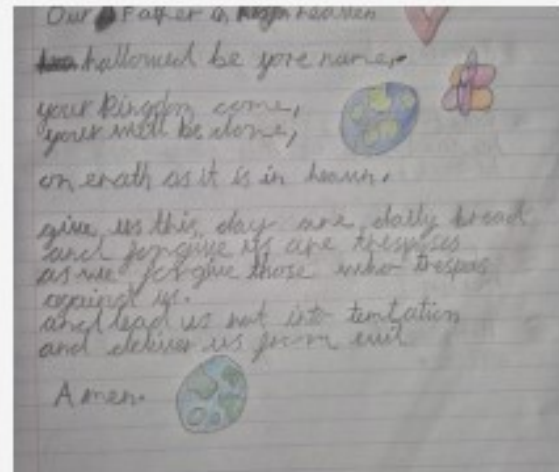 Our Father in heaven
hallowed be yore name,
your kingdom come,
your will be done,
on erath as it is in heaven.
give us this day are daily bread
and forgive us are trespises
as we forgive those who trespas
against us.
and lead us not into temtation
and deliver us from evil
Amen.